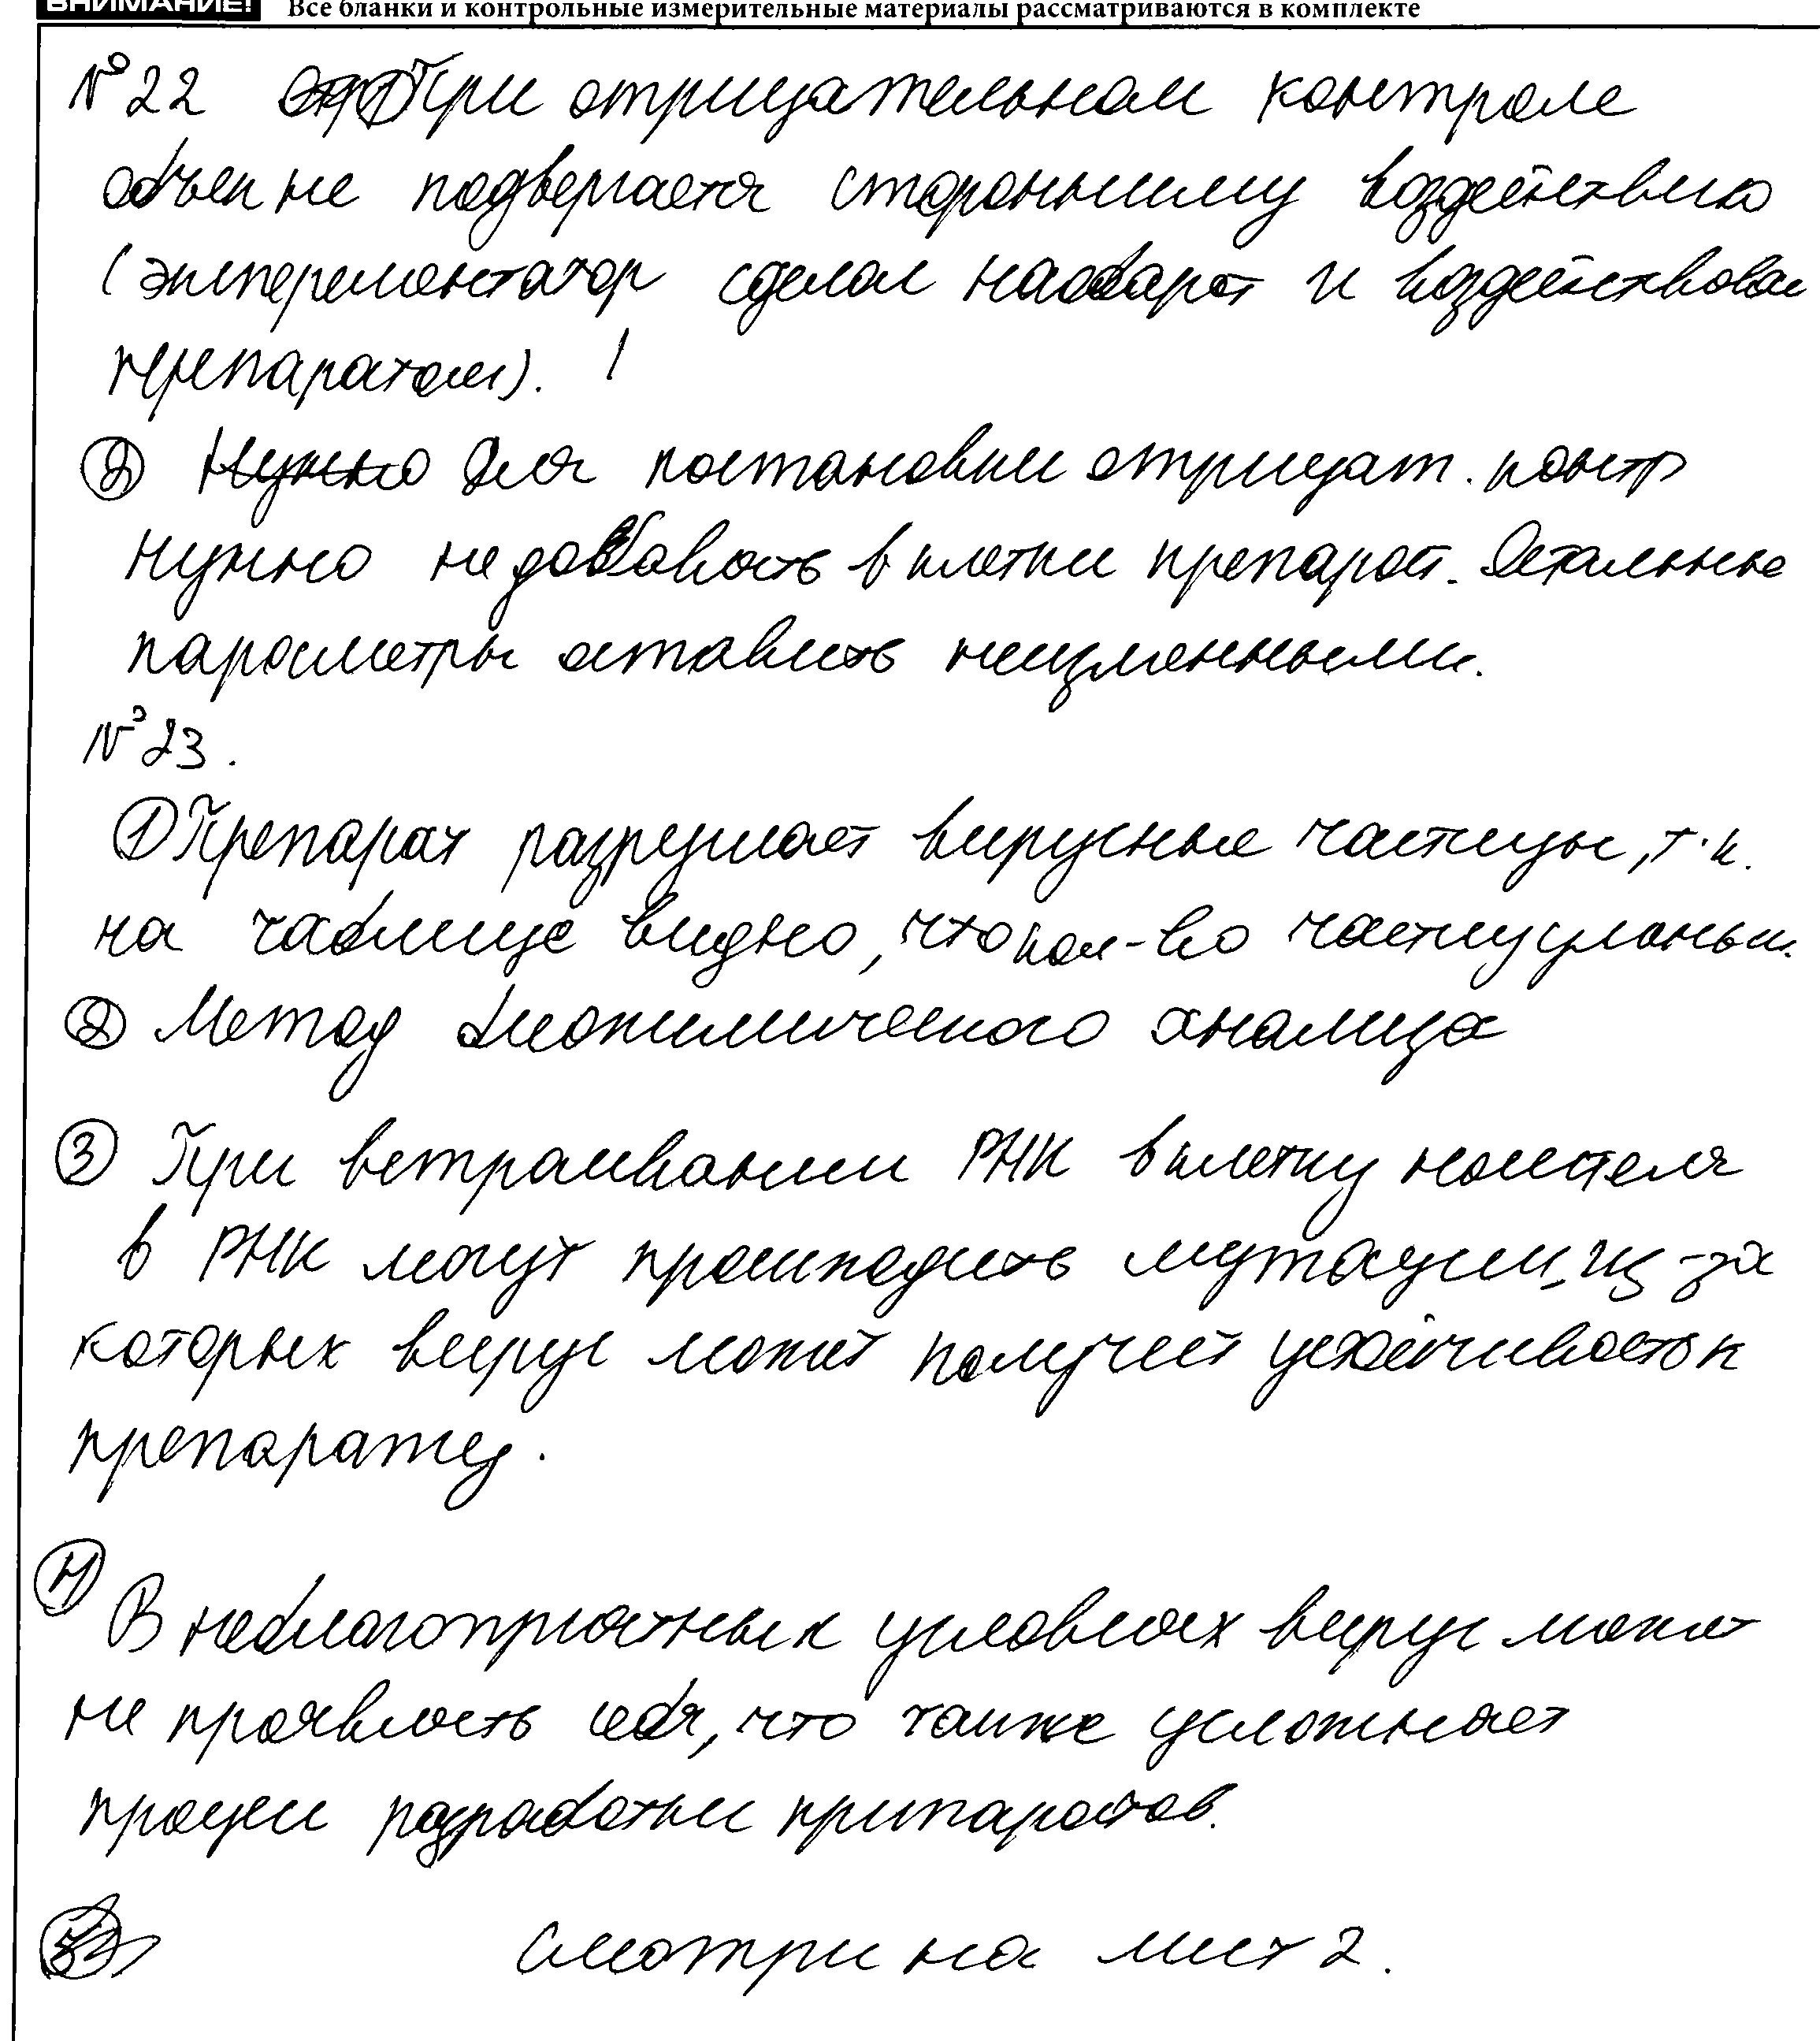 ВНИМАНИЕ! Все бланки и контрольные измерительные материалы рассматриваются в комплекте
№22 ① При отрицательном контроле
объек не подвергается стороньшиму воздействию
(эксперементатор сделал наоборот и воздействовал
препаратом).
② Нужно Для постановки отрицат. контр
нужно не добавлять в клетки препарат. Остальные
параметры оставить неизменными.
№23.
① Препарат разрушает вирусные частицы, т.к.
на таблице видно, что кол-во частиц уменьш.
② Метод биохимического анализа
③ При встраивании РНК в клетку носителя
в РНК могут происходить мутации, из-за
которых вирус может получит устойчивость к
препарату.
④
В неблагоприятных условиях вирус может
не проявлять себя, что также усложняет
процесс разработки припаратов.
Смотри на лист 2.